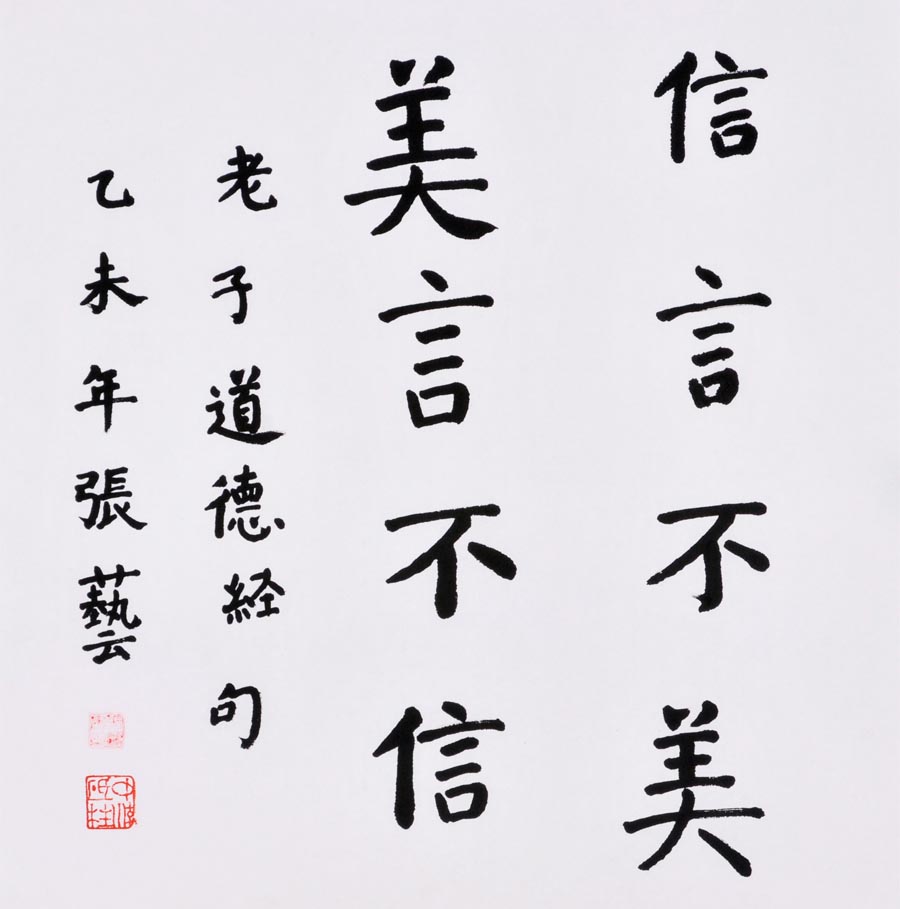 信言不美
美言不信
老子道德経句
乙未年張藝